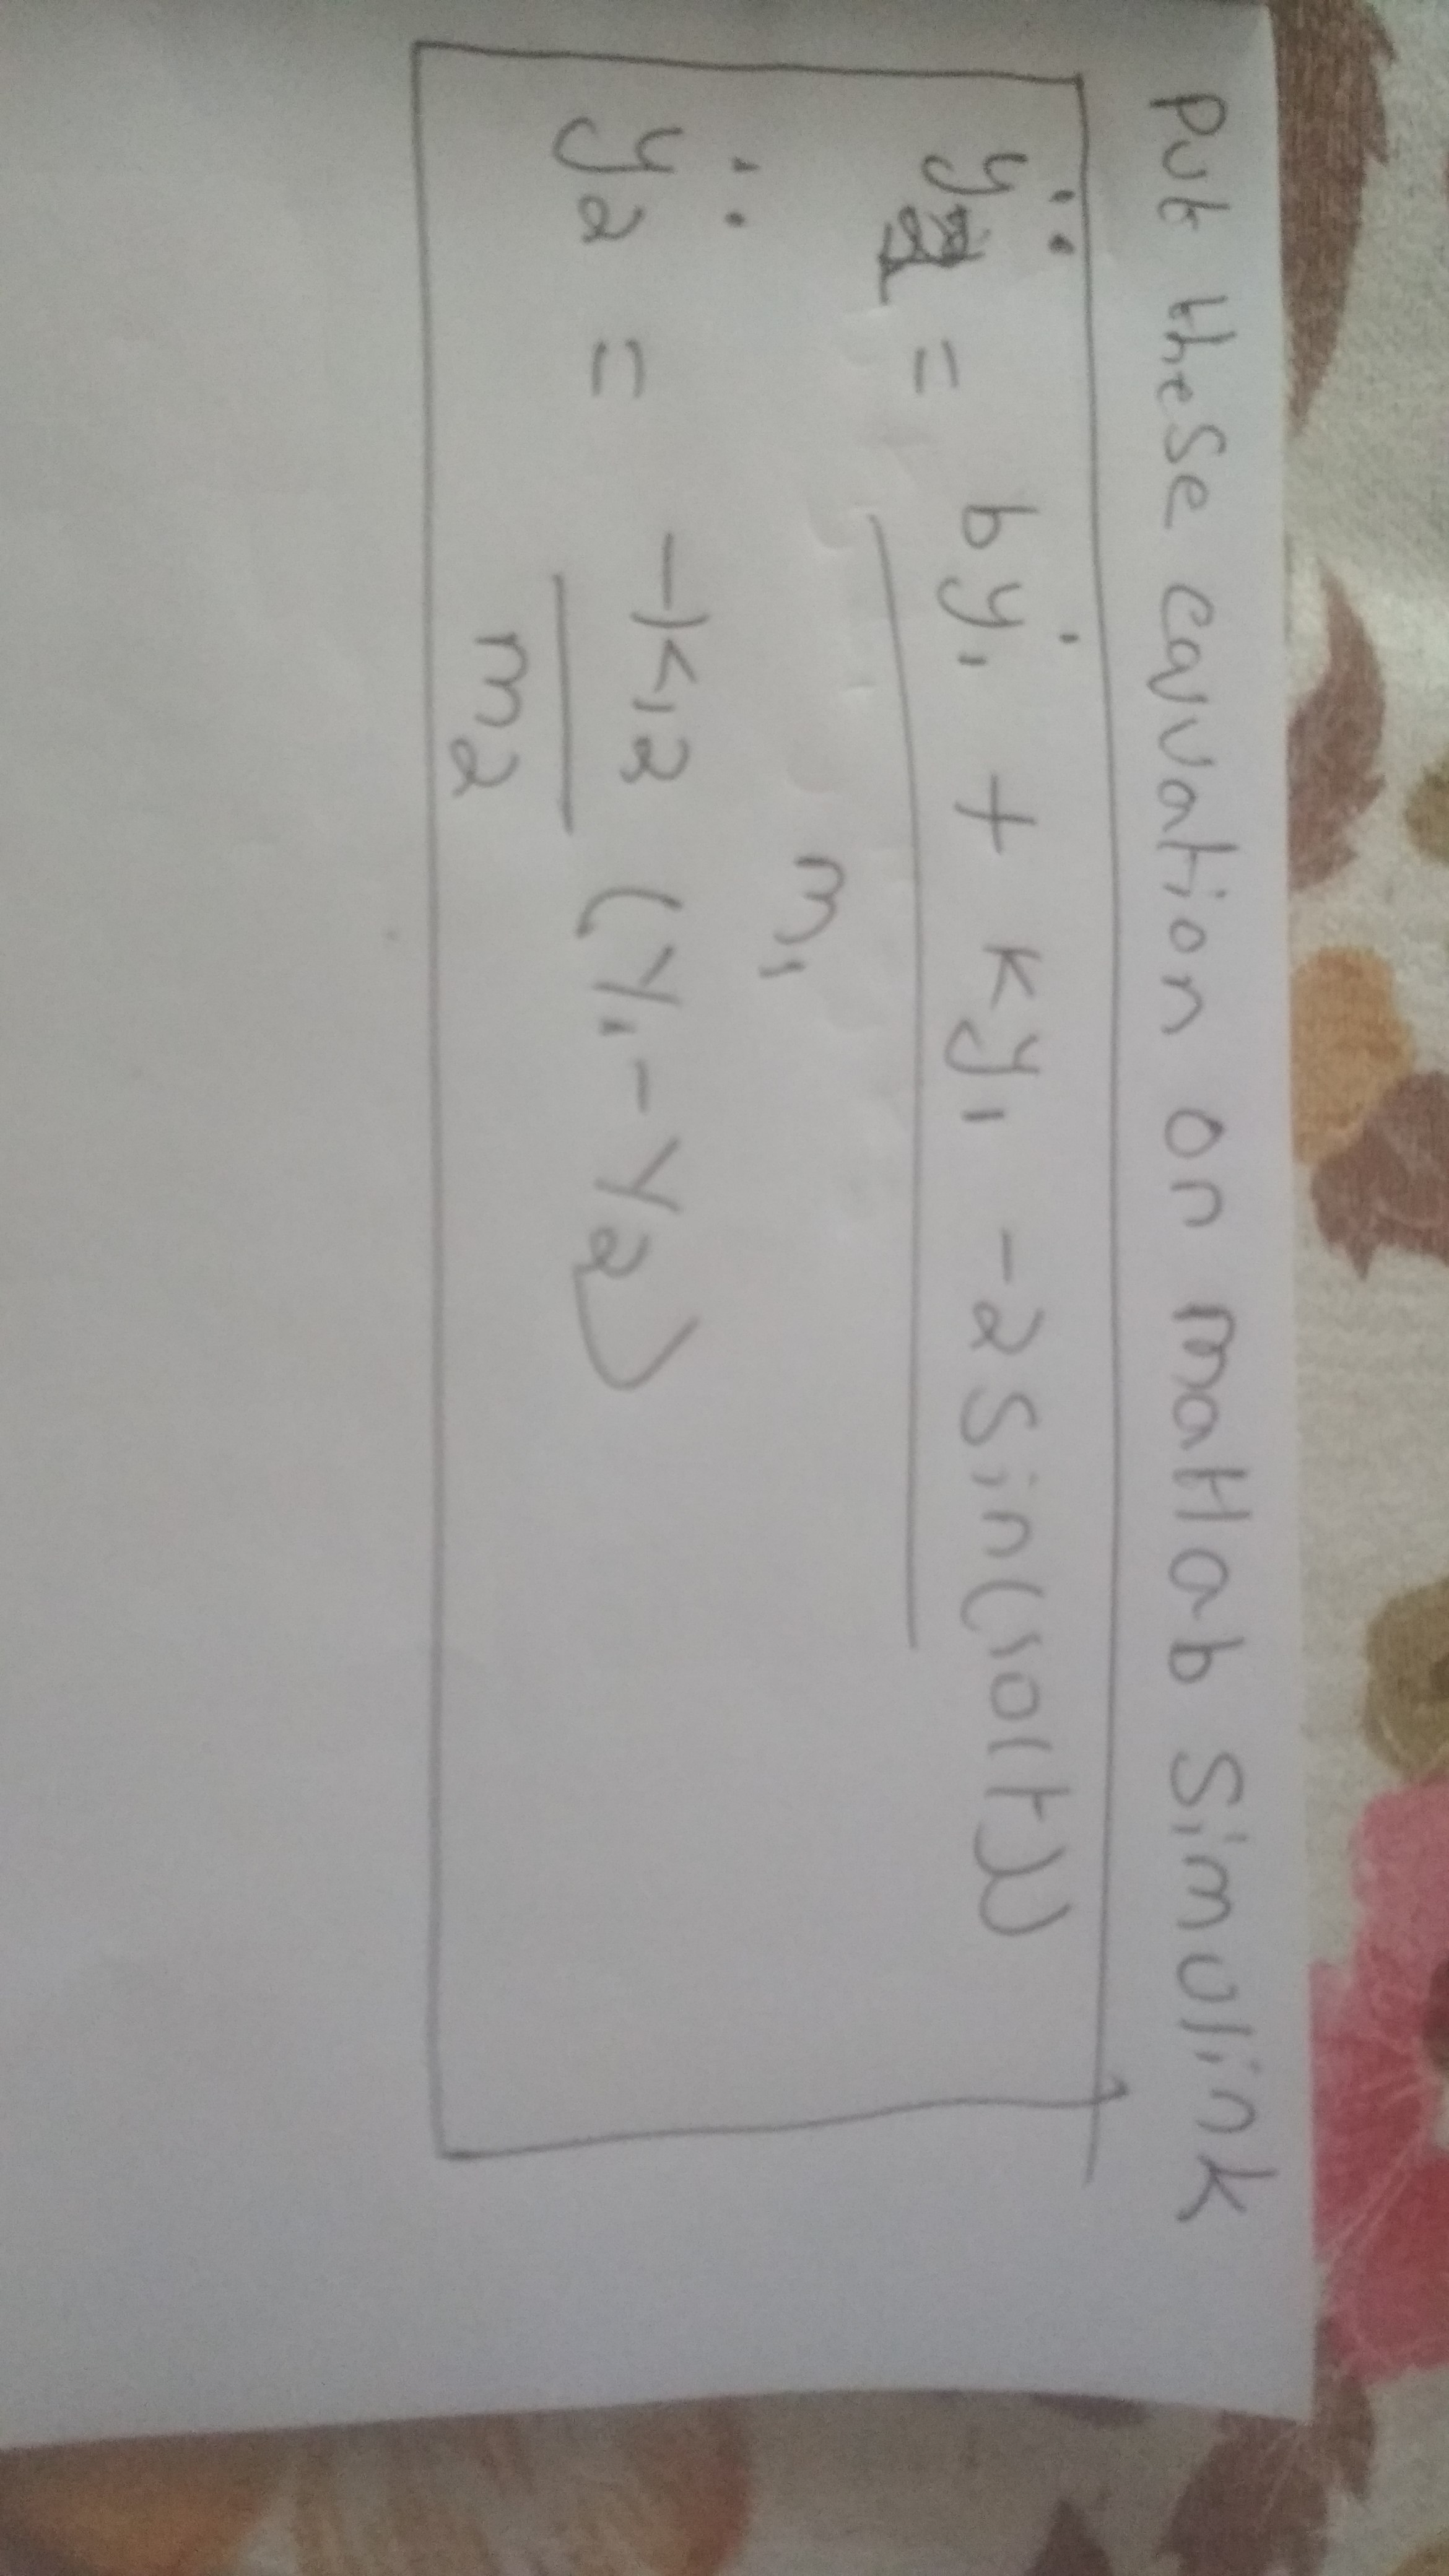 Put these equation on matlab Simulink
ÿ₁ = bẏ₁ + ky₁ - 2 Sin(10(t))
m₁
ÿ₂ = -k₁₂ (y₁ - y₂)
m₂